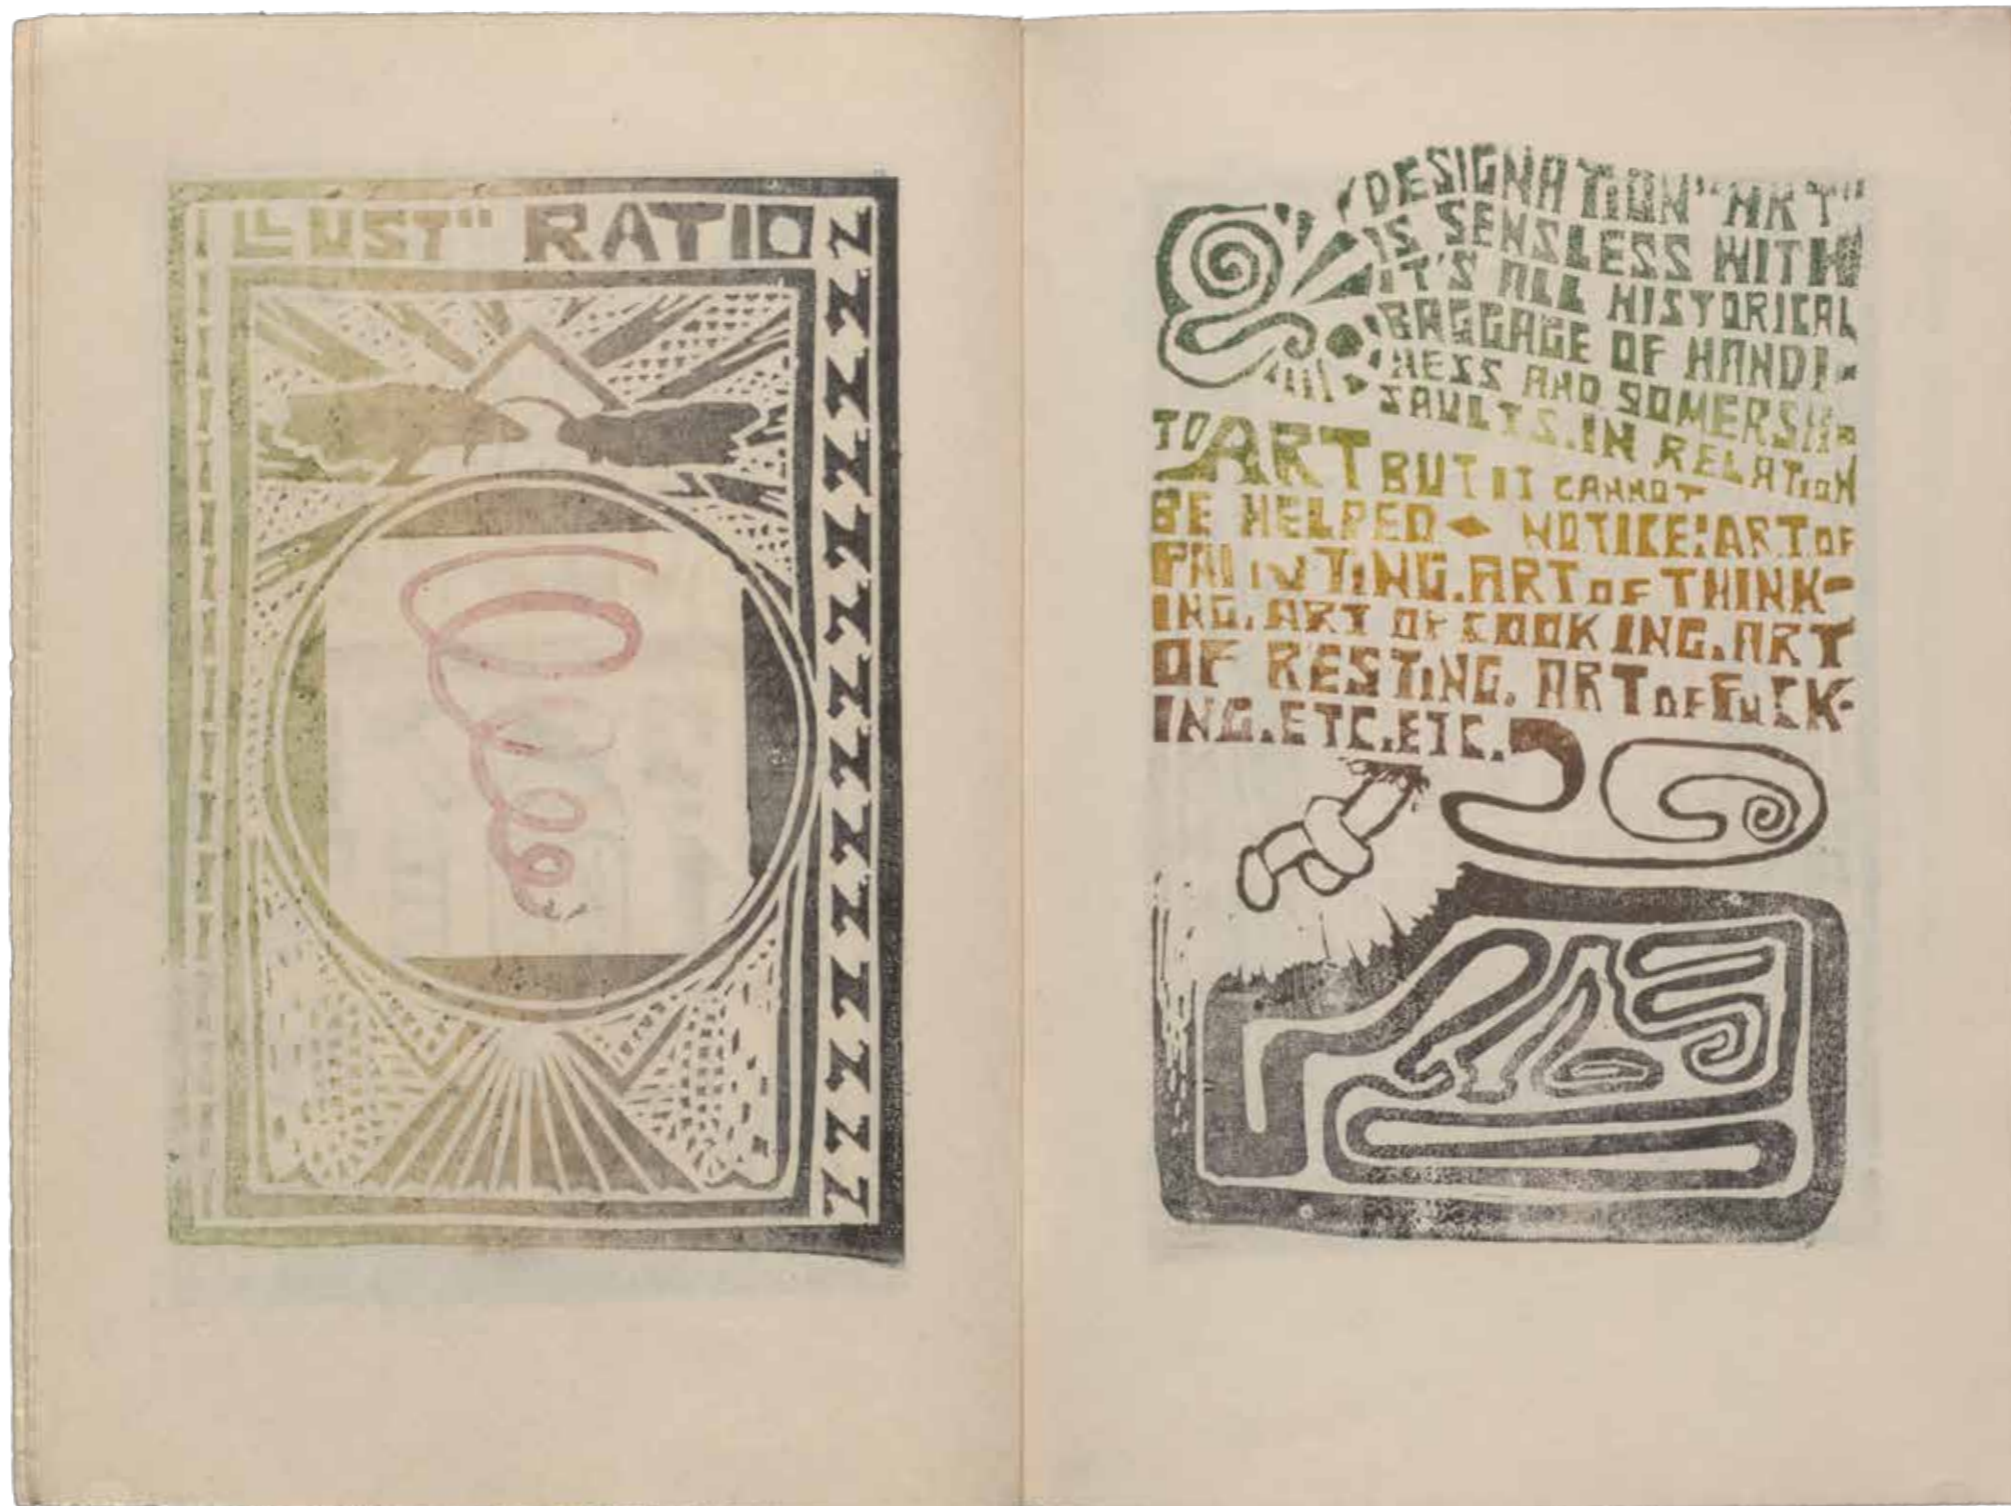 ILLUST" RATION
DESIGNATION "ART"
IS SENSLESS WITH
IT'S ALL HISTORICAL
BAGGAGE OF HANDI-
NESS AND SOMERSA-
SAULTS. IN RELATION
TO ART BUT IT CANNOT
BE HELPED ◆ NOTICE: ART OF
PAINTING. ART OF THINK-
ING. ART OF COOKING. ART
OF RESTING. ART OF FUCK-
ING. ETC. ETC.